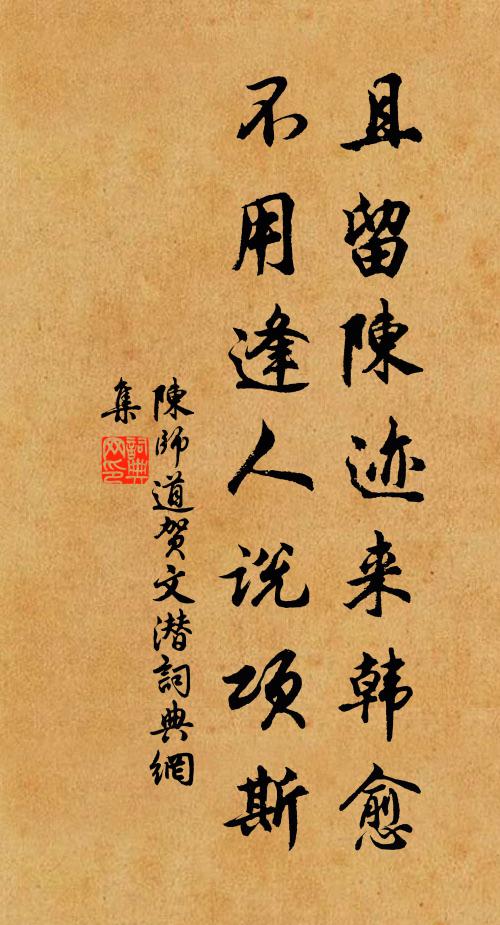 且留陳迹来韩愈
不用逢人说项斯
陳師道贺文潜詞典網
集
詞典网印